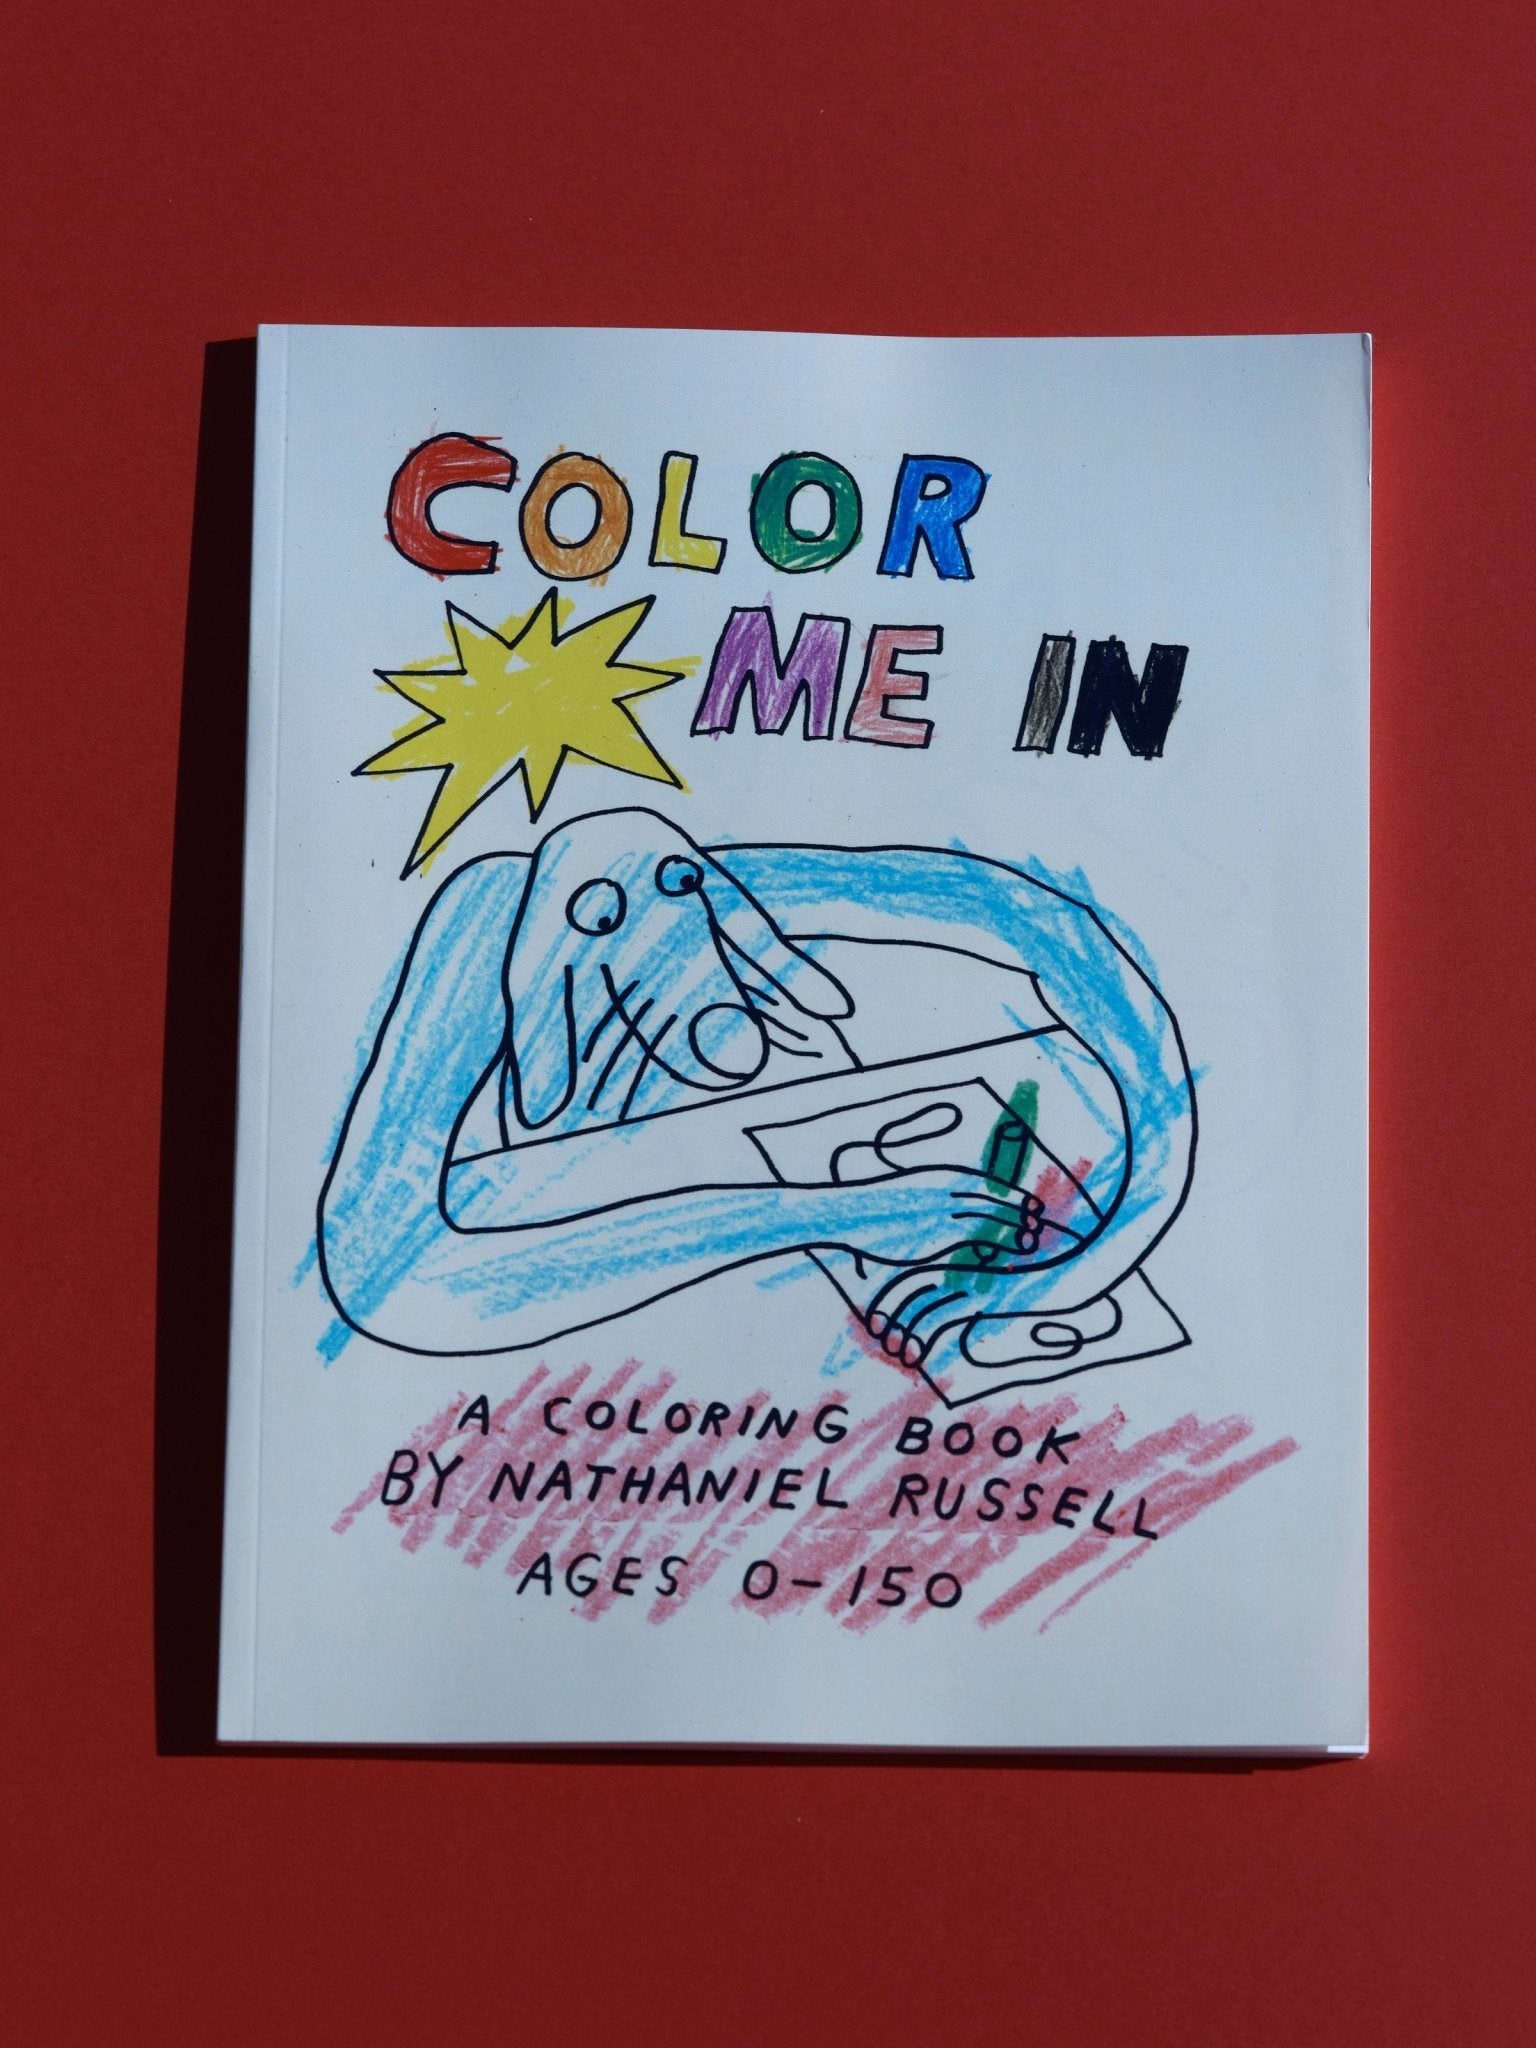 COLOR
ME IN
A COLORING BOOK
BY NATHANIEL RUSSELL
AGES 0-150